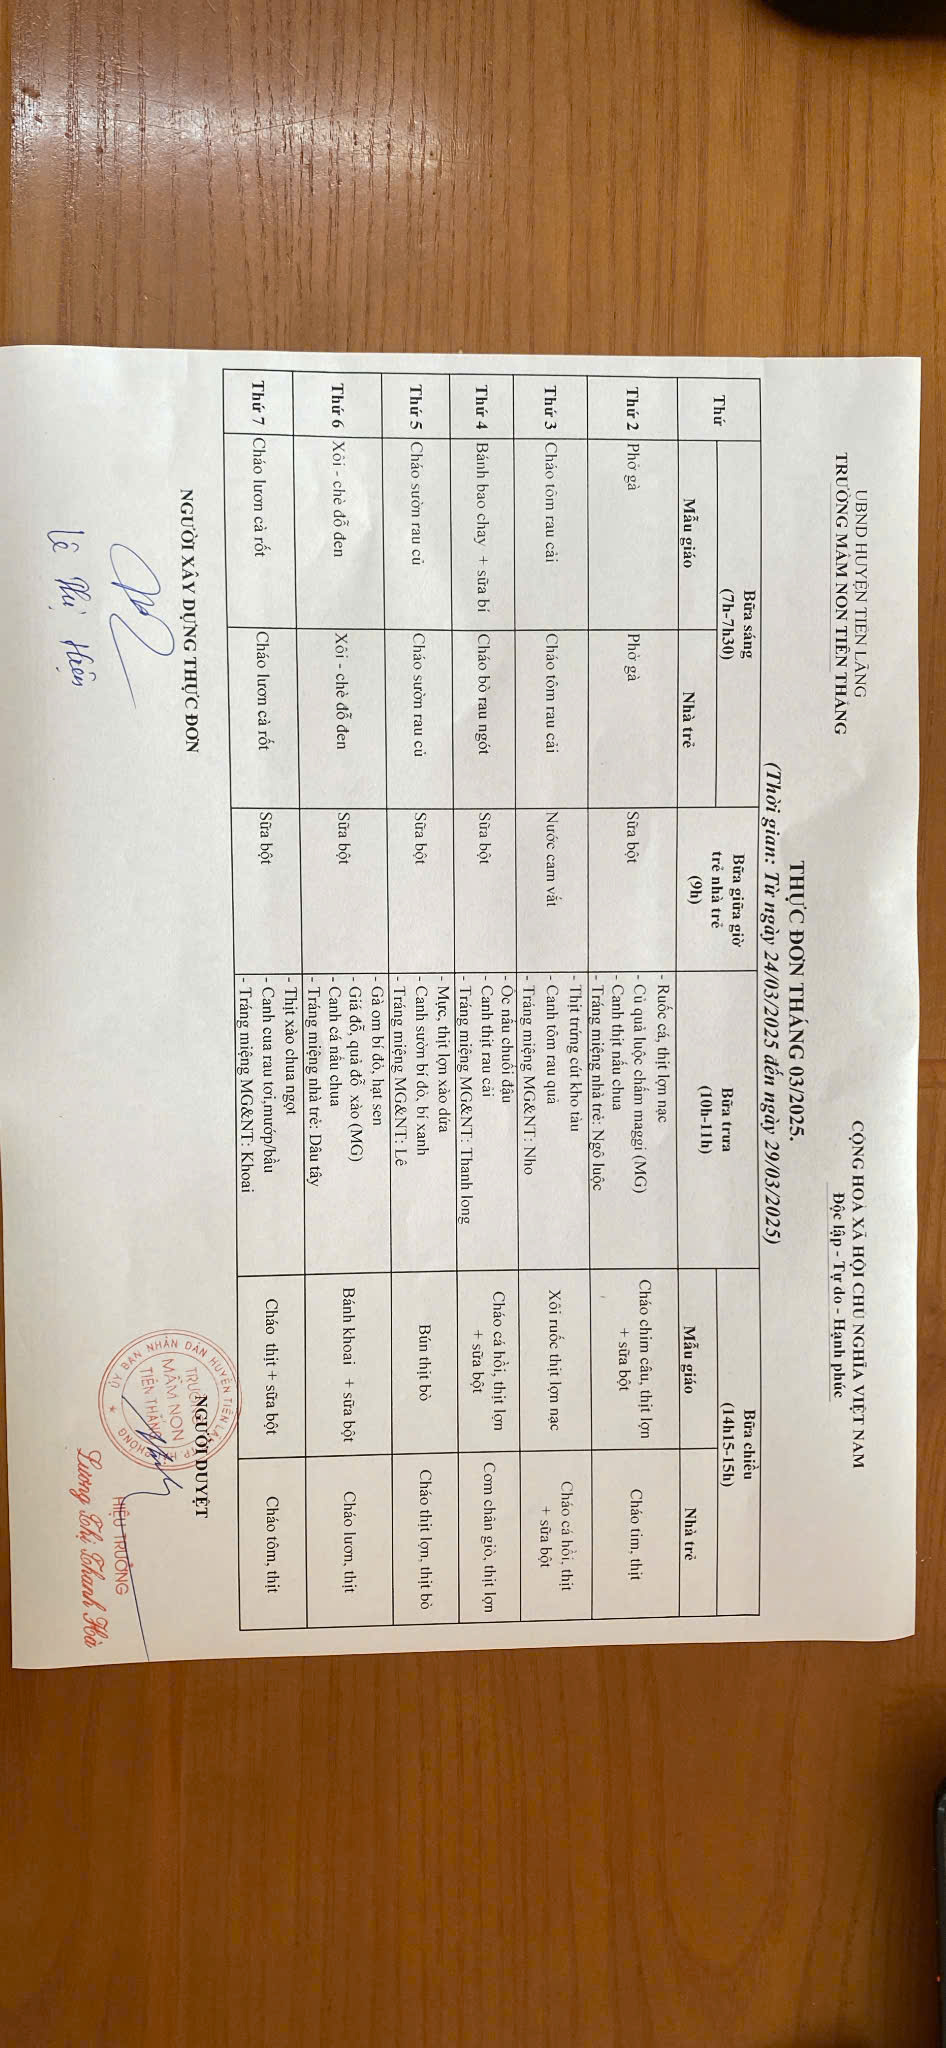 UBND HUYỆN TIÊN LÃNG
TRƯỜNG MẦM NON TIÊN THẮNG
CỘNG HOÀ XÃ HỘI CHỦ NGHĨA VIỆT NAM
Độc lập - Tự do - Hạnh phúc
THỰC ĐƠN THÁNG 03/2025.
(Thời gian: Từ ngày 24/03/2025 đến ngày 29/03/2025)
Thứ
Bữa sáng
(7h-7h30)
Mẫu giáo
Nhà trẻ
Bữa giữa giờ
trẻ nhà trẻ
(9h)
Bữa trưa
(10h-11h)
Bữa chiều
(14h15-15h)
Mẫu giáo
Nhà trẻ
Thứ 2
Phở gà
Phở gà
Sữa bột
- Ruốc cá, thịt lợn nạc
- Củ quả luộc chấm maggi (MG)
- Canh thịt nấu chua
- Tráng miệng nhà trẻ: Ngô luộc
Cháo chim câu, thịt lợn
+ sữa bột
Cháo tim, thịt
Thứ 3
Cháo tôm rau cải
Cháo tôm rau cải
Nước cam vắt
- Thịt trứng cút kho tàu
- Canh tôm rau quả
- Tráng miệng MG&NT: Nho
Xôi ruốc thịt lợn nạc
Cháo cá hồi, thịt
+ sữa bột
Thứ 4
Bánh bao chay + sữa bí
Cháo bò rau ngót
Sữa bột
- Ốc nấu chuối đậu
- Canh thịt rau cải
- Tráng miệng MG&NT: Thanh long
Cháo cá hồi, thịt lợn
+ sữa bột
Cơm chân giò, thịt lợn
Thứ 5
Cháo sườn rau củ
Cháo sườn rau củ
Sữa bột
- Mực, thịt lợn xào dứa
- Canh sườn bí đỏ, bí xanh
- Tráng miệng MG&NT: Lê
Bún thịt bò
Cháo thịt lợn, thịt bò
Thứ 6
Xôi - chè đỗ đen
Xôi - chè đỗ đen
Sữa bột
- Gà om bí đỏ, hạt sen
- Giá đỗ, quả đỗ xào (MG)
- Canh cá nấu chua
- Tráng miệng nhà trẻ: Dâu tây
Bánh khoai + sữa bột
Cháo lươn, thịt
Thứ 7
Cháo lươn cà rốt
Cháo lươn cà rốt
Sữa bột
- Thịt xào chua ngọt
- Canh cua rau tơi,mướp/bầu
- Tráng miệng MG&NT: Khoai
Cháo thịt + sữa bột
Cháo tôm, thịt
NGƯỜI XÂY DỰNG THỰC ĐƠN
Lê Thị Hiện
NGƯỜI DUYỆT
ỦY BAN NHÂN DÂN HUYỆN TIÊN LÃNG
TRƯỜNG
MẦM NON
TIÊN THẮNG
HIỆU TRƯỞNG
Lương Thị Thanh Hà